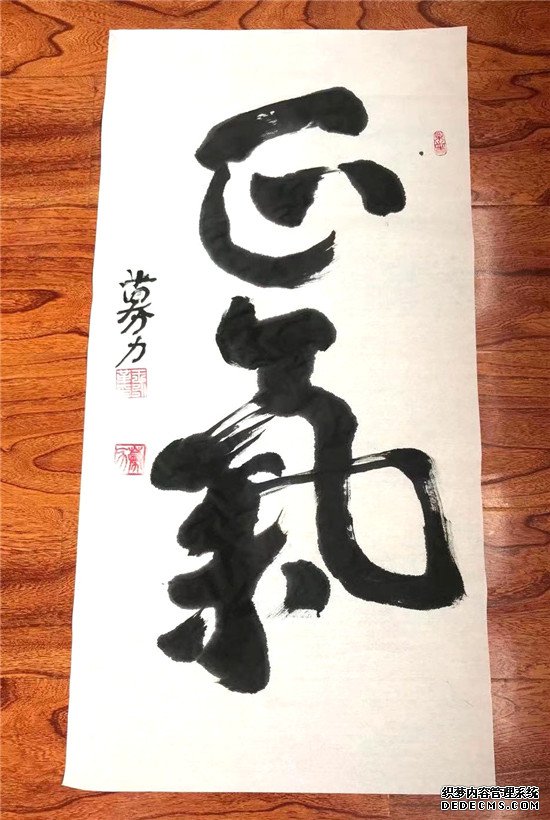 正氣
募力
织梦内容管理系统
DEDECMS.COM